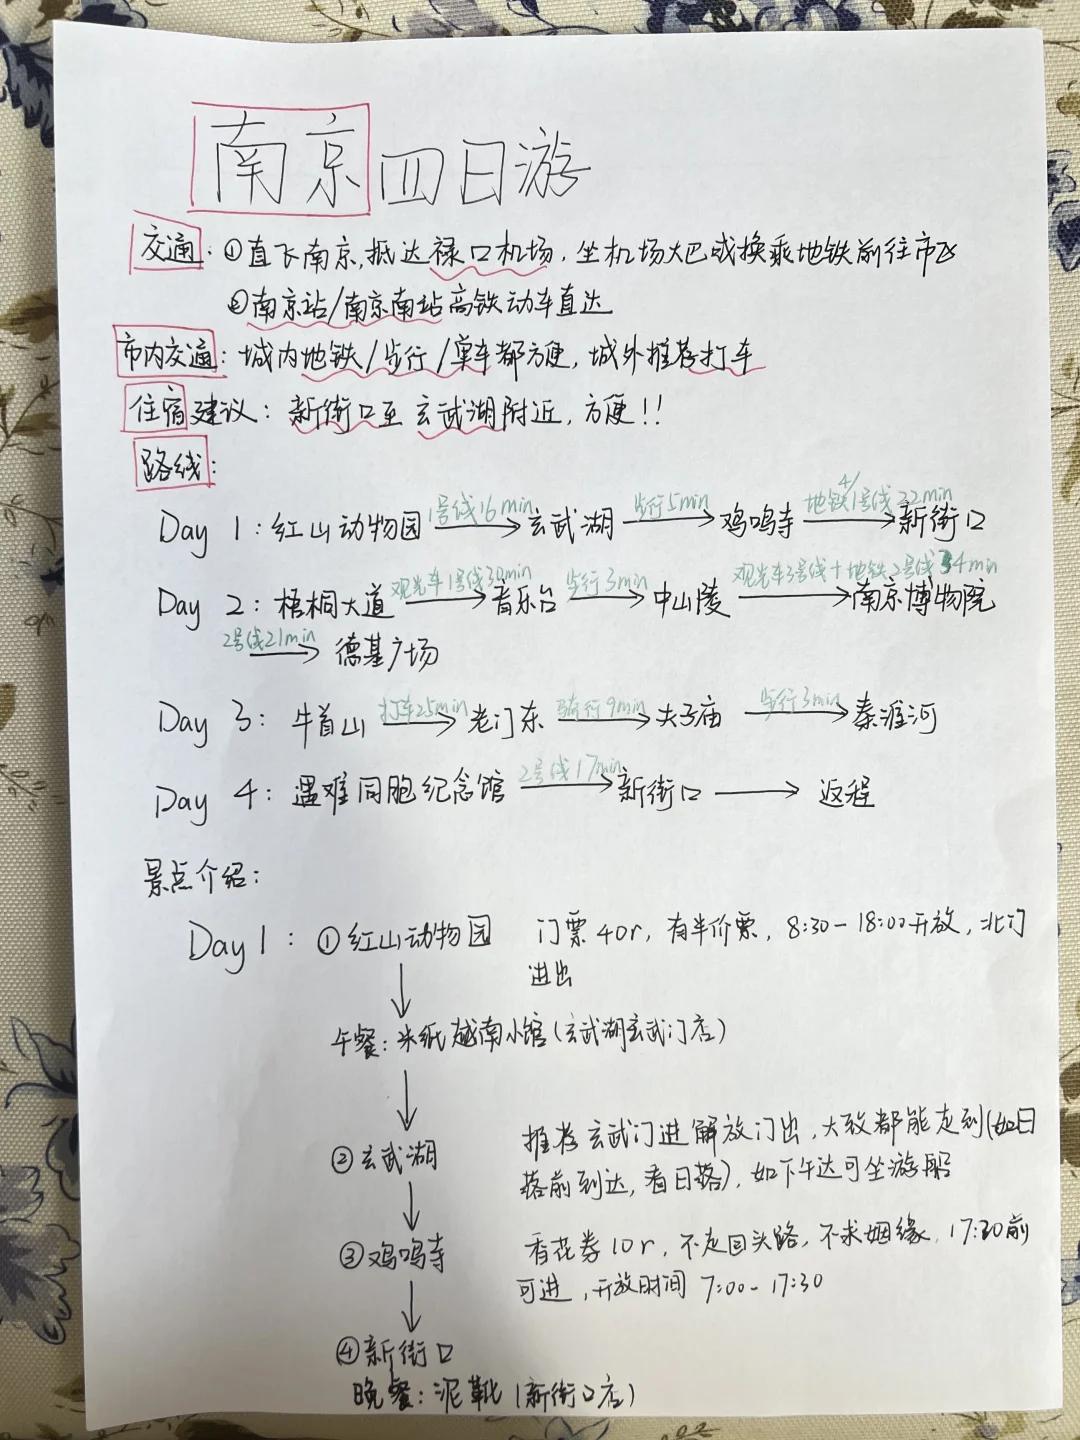 南京四日游
交通：①直飞南京，抵达禄口机场，坐机场大巴或换乘地铁前往市区
②南京站/南京南站高铁动车直达
市内交通：城内地铁/步行/单车都方便，城外推荐打车
住宿建议：新街口至玄武湖附近，方便!!
路线：
Day 1：红山动物园 1号线16min 玄武湖 步行5min 鸡鸣寺 地铁4/1号线22min 新街口
Day 2：梧桐大道 观光车1号线30min 音乐台 步行3min 中山陵 观光车3号线+地铁2号线34min 南京博物院
2号线21min 德基广场
Day 3：牛首山 打车25min 老门东 骑行9min 夫子庙 步行3min 秦淮河
Day 4：遇难同胞纪念馆 2号线17min 新街口 返程
景点介绍：
Day1：①红山动物园 门票40r，有半价票，8:30-18:00开放，北门
进出
午餐：米纸越南小馆(玄武湖玄武门店)
②玄武湖 推荐玄武门进解放门出，大致都能走到(如日
落前到达，看日落)，如下午达可坐游船
③鸡鸣寺 香花券10r，不走回头路，不求姻缘，17:30前
可进，开放时间 7:00-17:30
④新街口
晚餐：泥靴(新街口店)